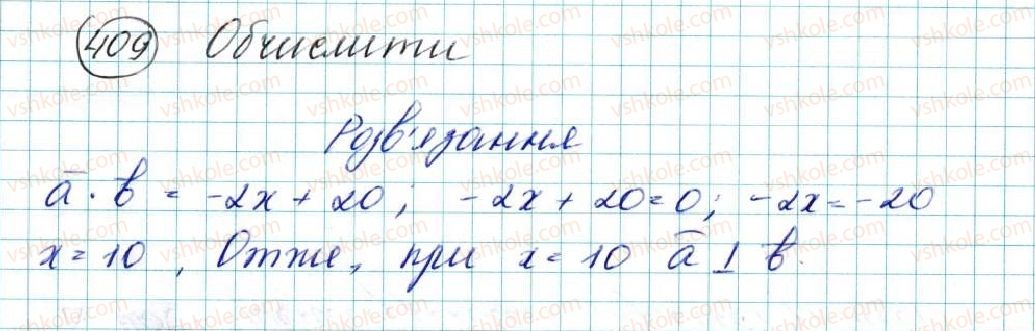 409 Обчислити
Розв'язання
a̅ · b = -2x + 20; -2x + 20 = 0; -2x = -20
x = 10, Отже, при x = 10 a̅ ⊥ b.
vshkole.com